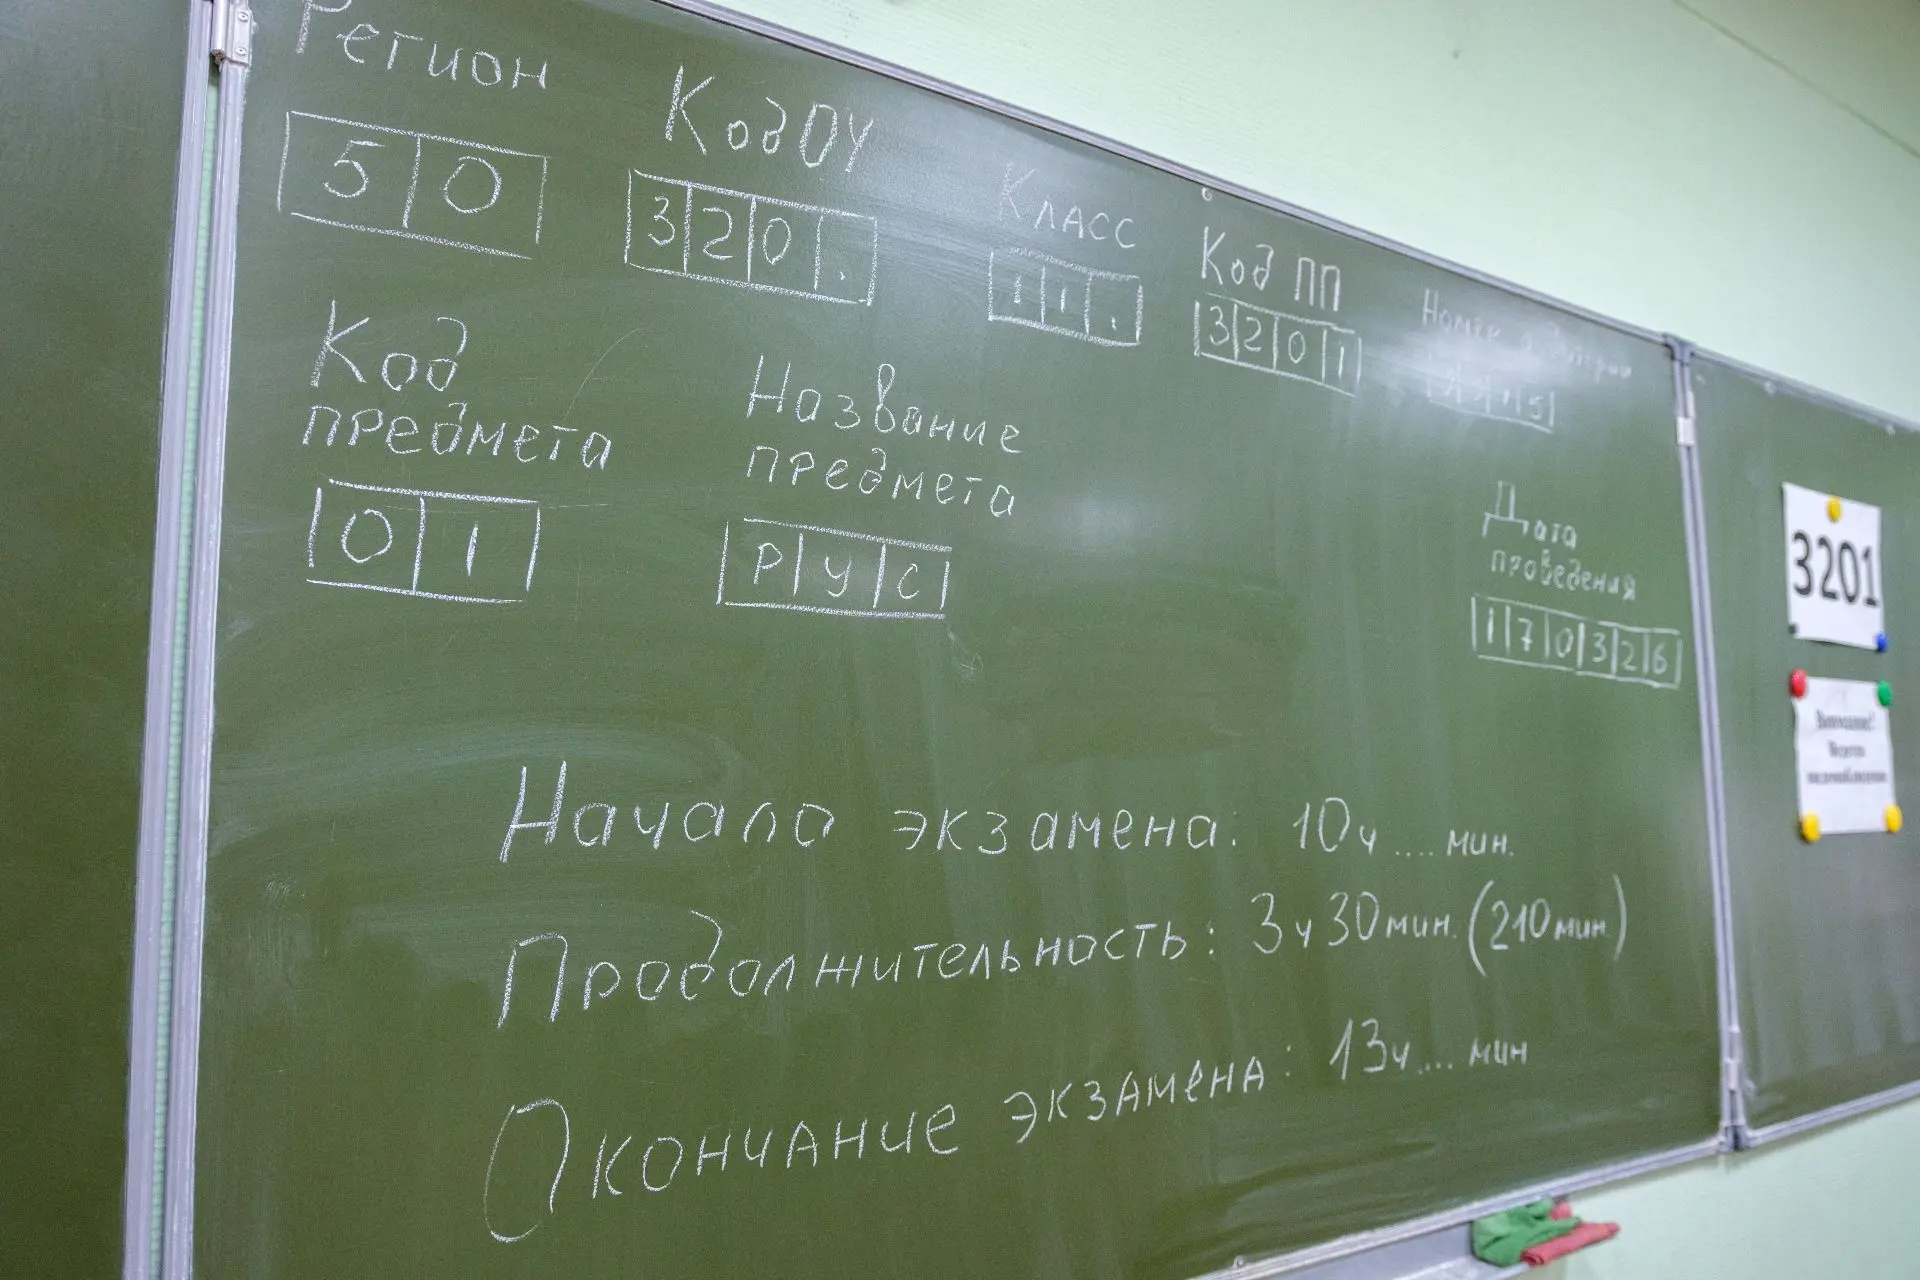 Регион
50
Код ОУ
320.
Класс
11.
Код ПП
3201
Номер аудитории
Код
предмета
01
Название
предмета
РУС
Дата
проведения
170326
3201
Внимание!
Ведется
видеонаблюдение
Начало экзамена: 10ч .... мин.
Продолжительность: 3ч 30мин. (210 мин.)
Окончание экзамена: 13ч .... мин